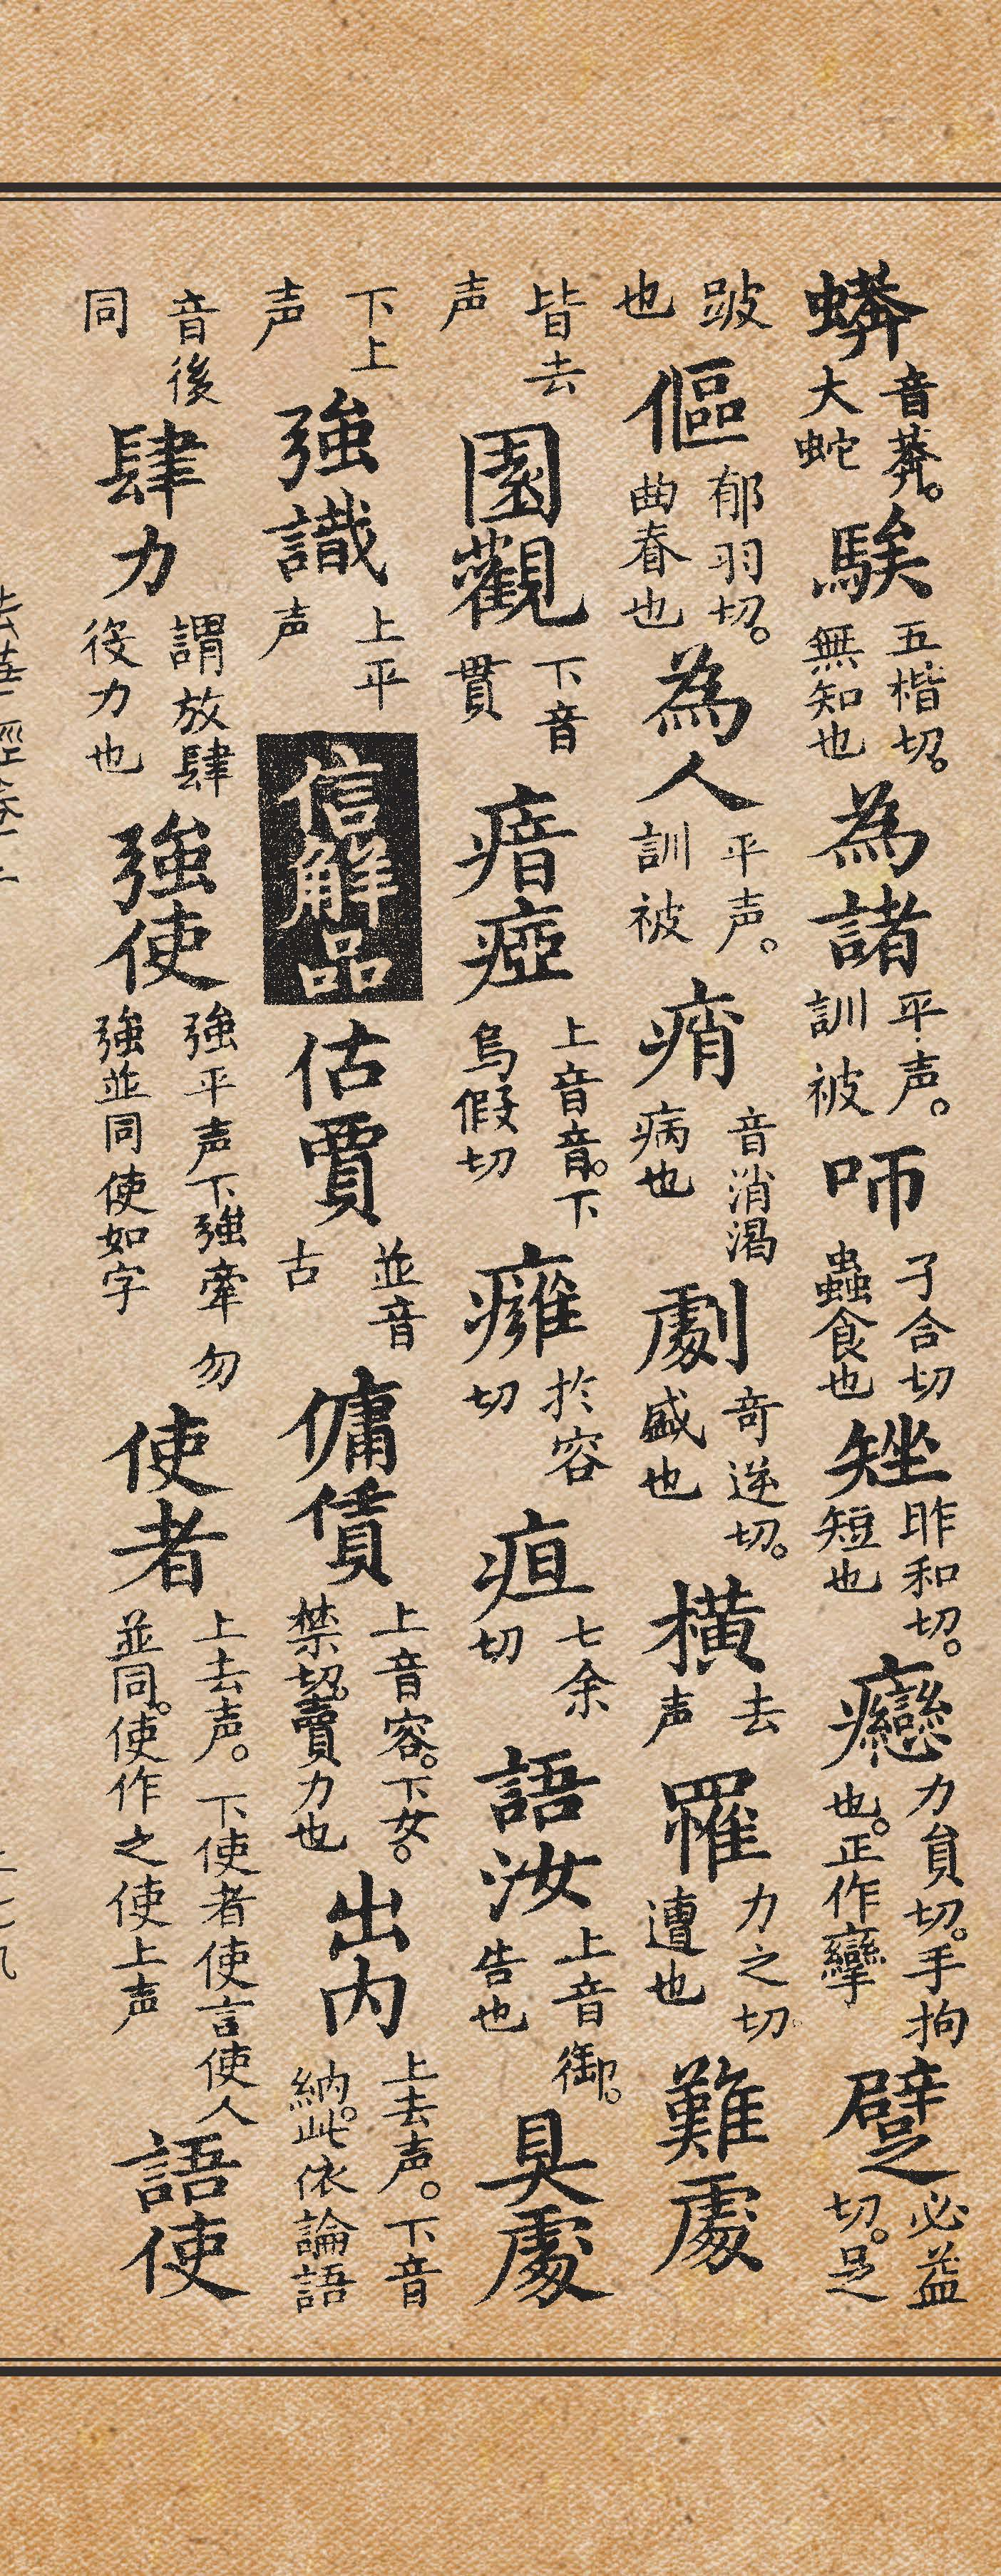 蟒音蟒。大蛇騃五楷切。無知也為諸平声。訓被咂子合切蟲食也矬昨和切。短也癴力負切。手拘也。正作攣躄必益切。足
跛也傴郁羽切。曲脊也為人平声。訓被痟音消渴病也劇奇逆切。盛也橫去声罹力之切遭也難處
皆去声園觀下音貫瘖瘂上音音。下烏假切癰於容切疽七余切語汝上音御。告也具處
下上声強識上平声信解品估賈並音古傭賃上音容。下女。禁切。賣力也出内上去声。下音納。此依論語
音後同肆力謂放肆役力也強使強平声下強牽勿強並同使如字使者上去声。下使者使言使人並同。使作之使上声語使